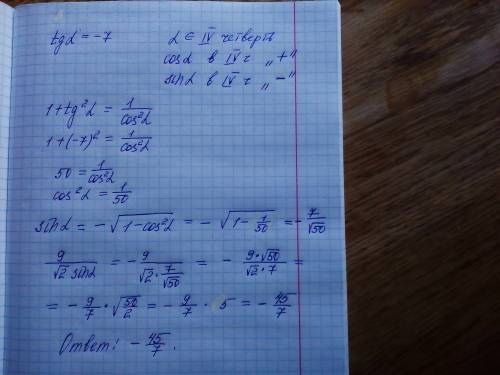 tgα = -7 α ∈ IV четверть
cosα в IV ч „+"
sinα в IV ч „-"
1+tg²α = 1/cos²α
1+(-7)² = 1/cos²α
50 = 1/cos²α
cos²α = 1/50
sinα = -√(1-cos²α) = -√(1-1/50) = -7/√50
9/(√2 sinα) = -9/(√2·7/√50) = -(9·√50)/(√2·7) =
= -9/7·√(50/2) = -9/7·5 = -45/7
Ответ: -45/7.